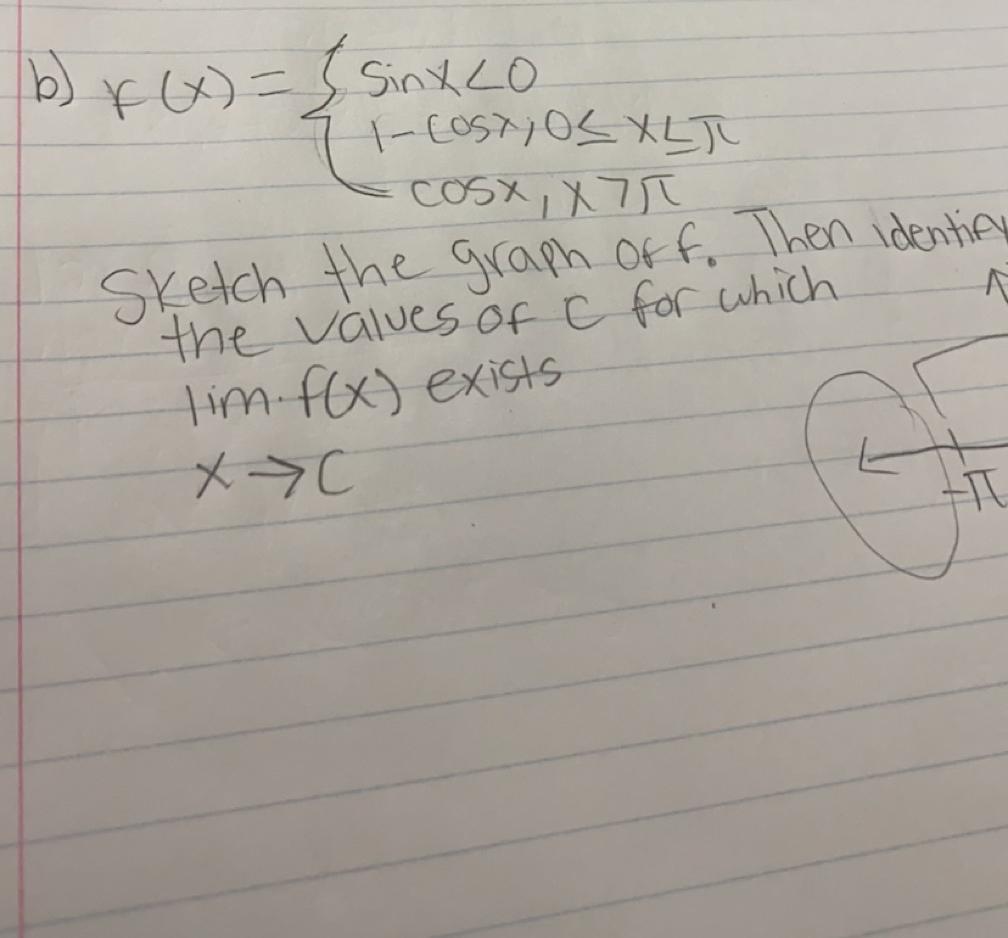 b) f(x) = { sinx<0
1-cosx, 0≤ x≤π
cosx, x>π
Sketch the graph of f. Then identify
the values of c for which
lim. f(x) exists
x→c
-π